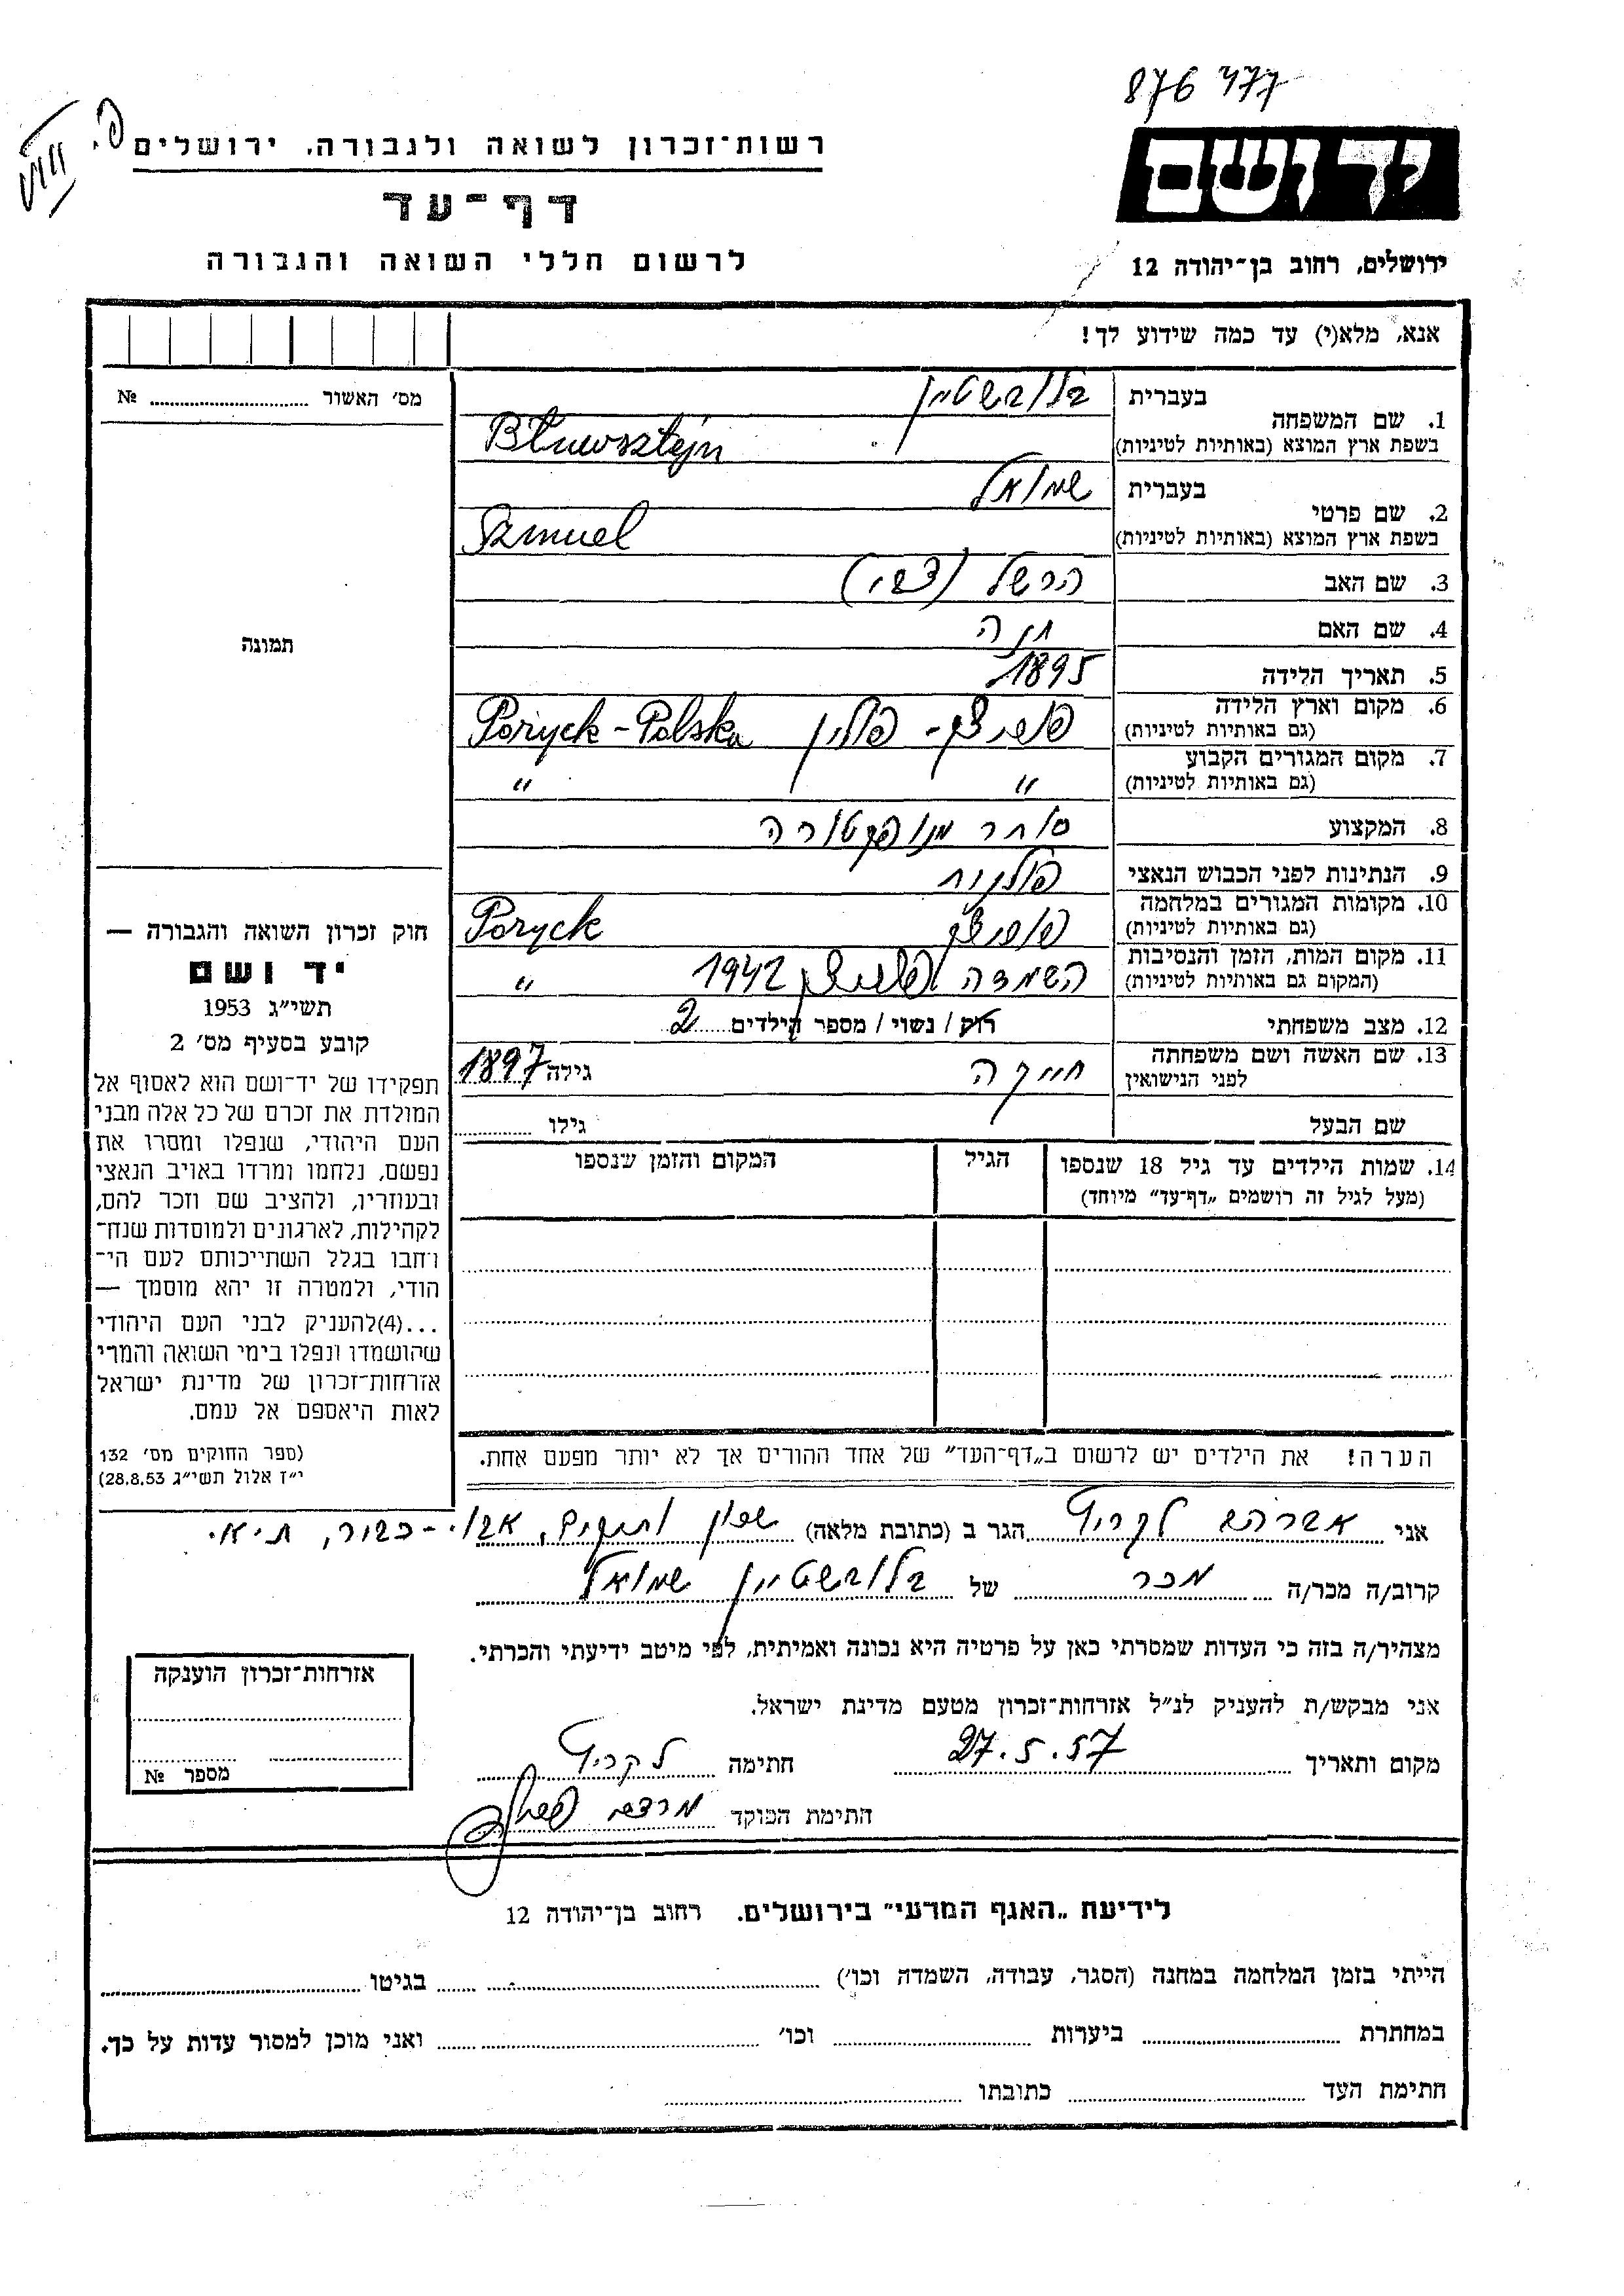 876 477
רשות־זכרון לשואה ולגבורה, ירושלים
יד ושם
דף־עד
לרשום חללי השואה והגבורה
ירושלים, רחוב בן־יהודה 12
אנא, מלא(י) עד כמה שידוע לך!
מס׳ האשור № 
1. שם המשפחה בעברית בלובשטיין
בשפת ארץ המוצא (באותיות לטיניות) Błuwsztejn
2. שם פרטי בעברית שמואל
בשפת ארץ המוצא (באותיות לטיניות) Szmuel
3. שם האב הרשל (צבי)
4. שם האם חנה
5. תאריך הלידה 1895
6. מקום וארץ הלידה פוריצק - פולין Poryck - Polska
(גם באותיות לטיניות)
7. מקום המגורים הקבוע " "
(גם באותיות לטיניות)
8. המקצוע סוחר מנופקטורה
9. הנתינות לפני הכבוש הנאצי פולנית
10. מקומות המגורים במלחמה פוריצק Poryck
(גם באותיות לטיניות)
11. מקום המות, הזמן והנסיבות השמדה פוריצק 1942 "
(המקום גם באותיות לטיניות)
12. מצב משפחתי רוק / נשוי / מספר הילדים 2
13. שם האשה ושם משפחתה חייקה גילה 1897
לפני הנישואין
שם הבעל גילו
14. שמות הילדים עד גיל 18 שנספו הגיל המקום והזמן שנספו
(מעל לגיל זה רושמים „דף־עד” מיוחד)
הערה! את הילדים יש לרשום ב„דף־העד” של אחד ההורים אך לא יותר מפעם אחת.
תמונה
חוק זכרון השואה והגבורה —
יד ושם
תשי״ג 1953
קובע בסעיף מס׳ 2
תפקידו של יד־ושם הוא לאסוף אל
המולדת את זכרם של כל אלה מבני
העם היהודי, שנפלו ומסרו את
נפשם, נלחמו ומרדו באויב הנאצי
ובעוזריו, ולהציב שם וזכר להם,
לקהילות, לארגונים ולמוסדות שנח־
רחבו בגלל השתייכותם לעם הי־
הודי, ולמטרה זו יהא מוסמך —
...(4)להעניק לבני העם היהודי
שהושמדו ונפלו בימי השואה והמרי
אזרחות־זכרון של מדינת ישראל
לאות היאספם אל עמם.
(ספר החוקים מס׳ 132
י״ז אלול תשי״ג 28.8.53)
אני אברהם הגר ב (כתובת מלאה) שכון ותיקים, אבו-כביר, ת״א.
קרוב/ה מכר/ה מכר של בלובשטיין שמואל
מצהיר/ה בזה כי העדות שמסרתי כאן על פרטיה היא נכונה ואמיתית, לפי מיטב ידיעתי והכרתי.
אני מבקש/ת להעניק לנ״ל אזרחות־זכרון מטעם מדינת ישראל.
מקום ותאריך 27.5.57 חתימה
חתימת הפוקד
אזרחות־זכרון הוענקה
מספר №
לידיעת „האגף המדעי” בירושלים, רחוב בן־יהודה 12
הייתי בזמן המלחמה במחנה (הסגר, עבודה, השמדה וכו׳) בגיטו
במחתרת ביערות וכו׳ ואני מוכן למסור עדות על כך.
חתימת העד כתובתו